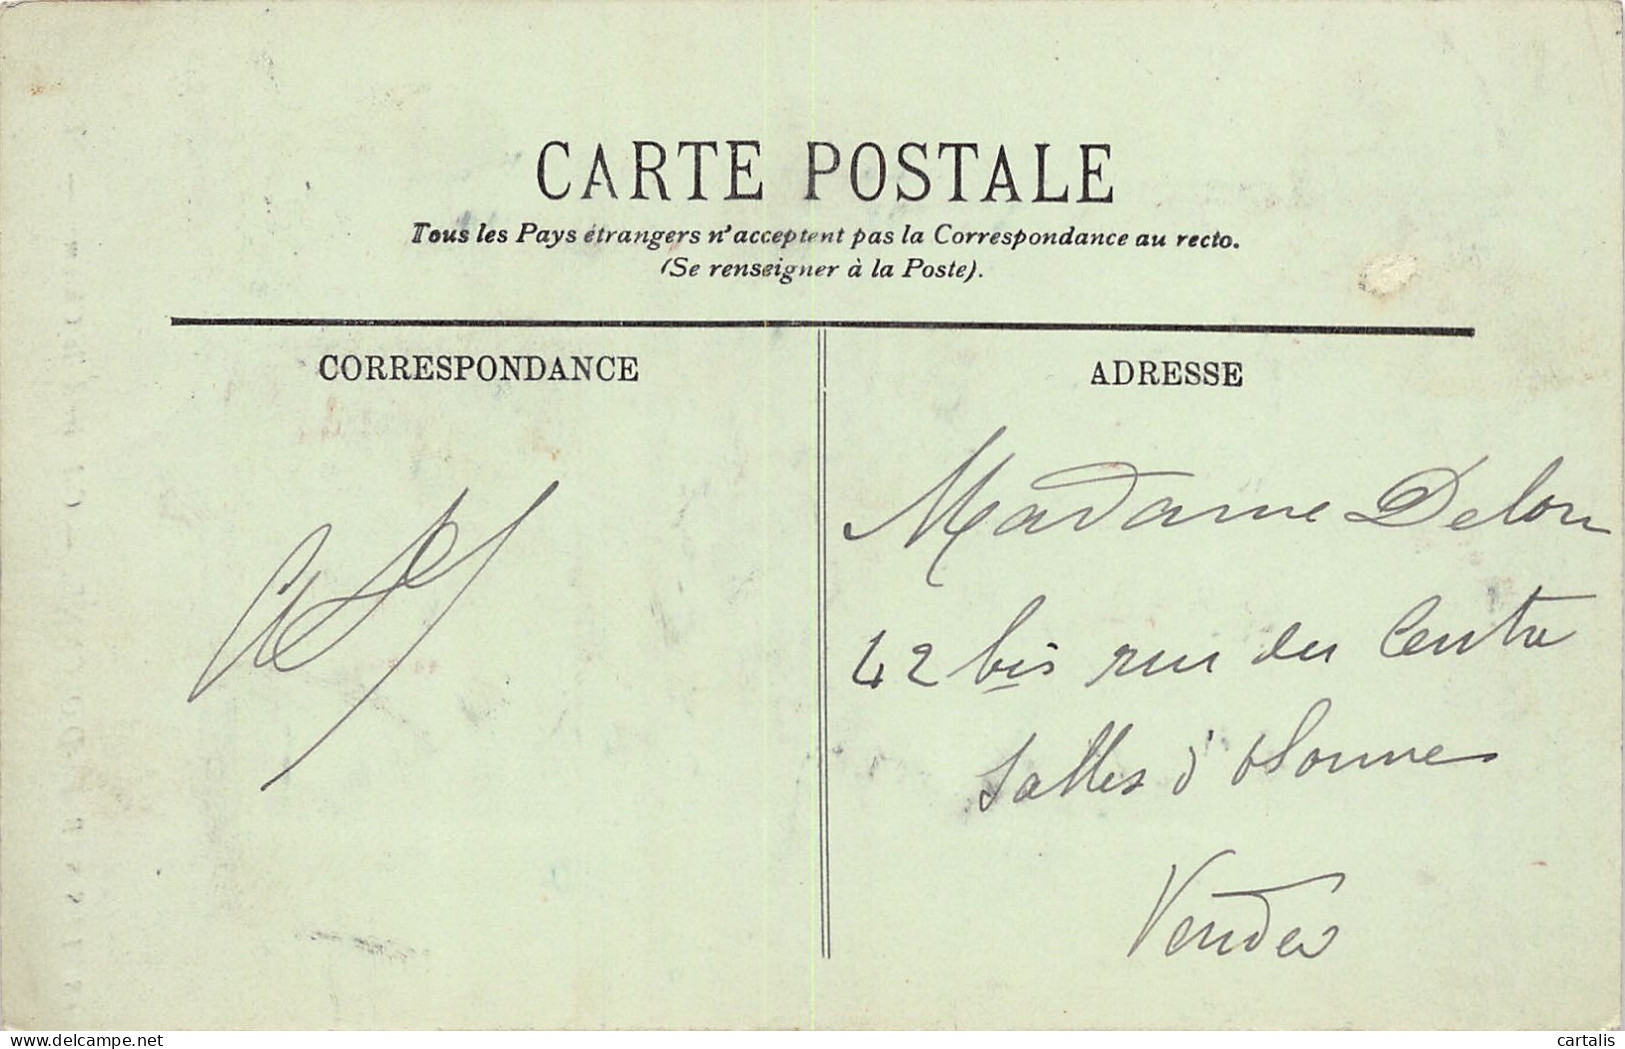 CARTE POSTALE
Tous les Pays étrangers n'acceptent pas la Correspondance au recto.
(Se renseigner à la Poste).
CORRESPONDANCE
ADRESSE
Madame Delon
42 bis rue du Centre
Salles d'Olonne
Vendée
delcampe.net
cartalis